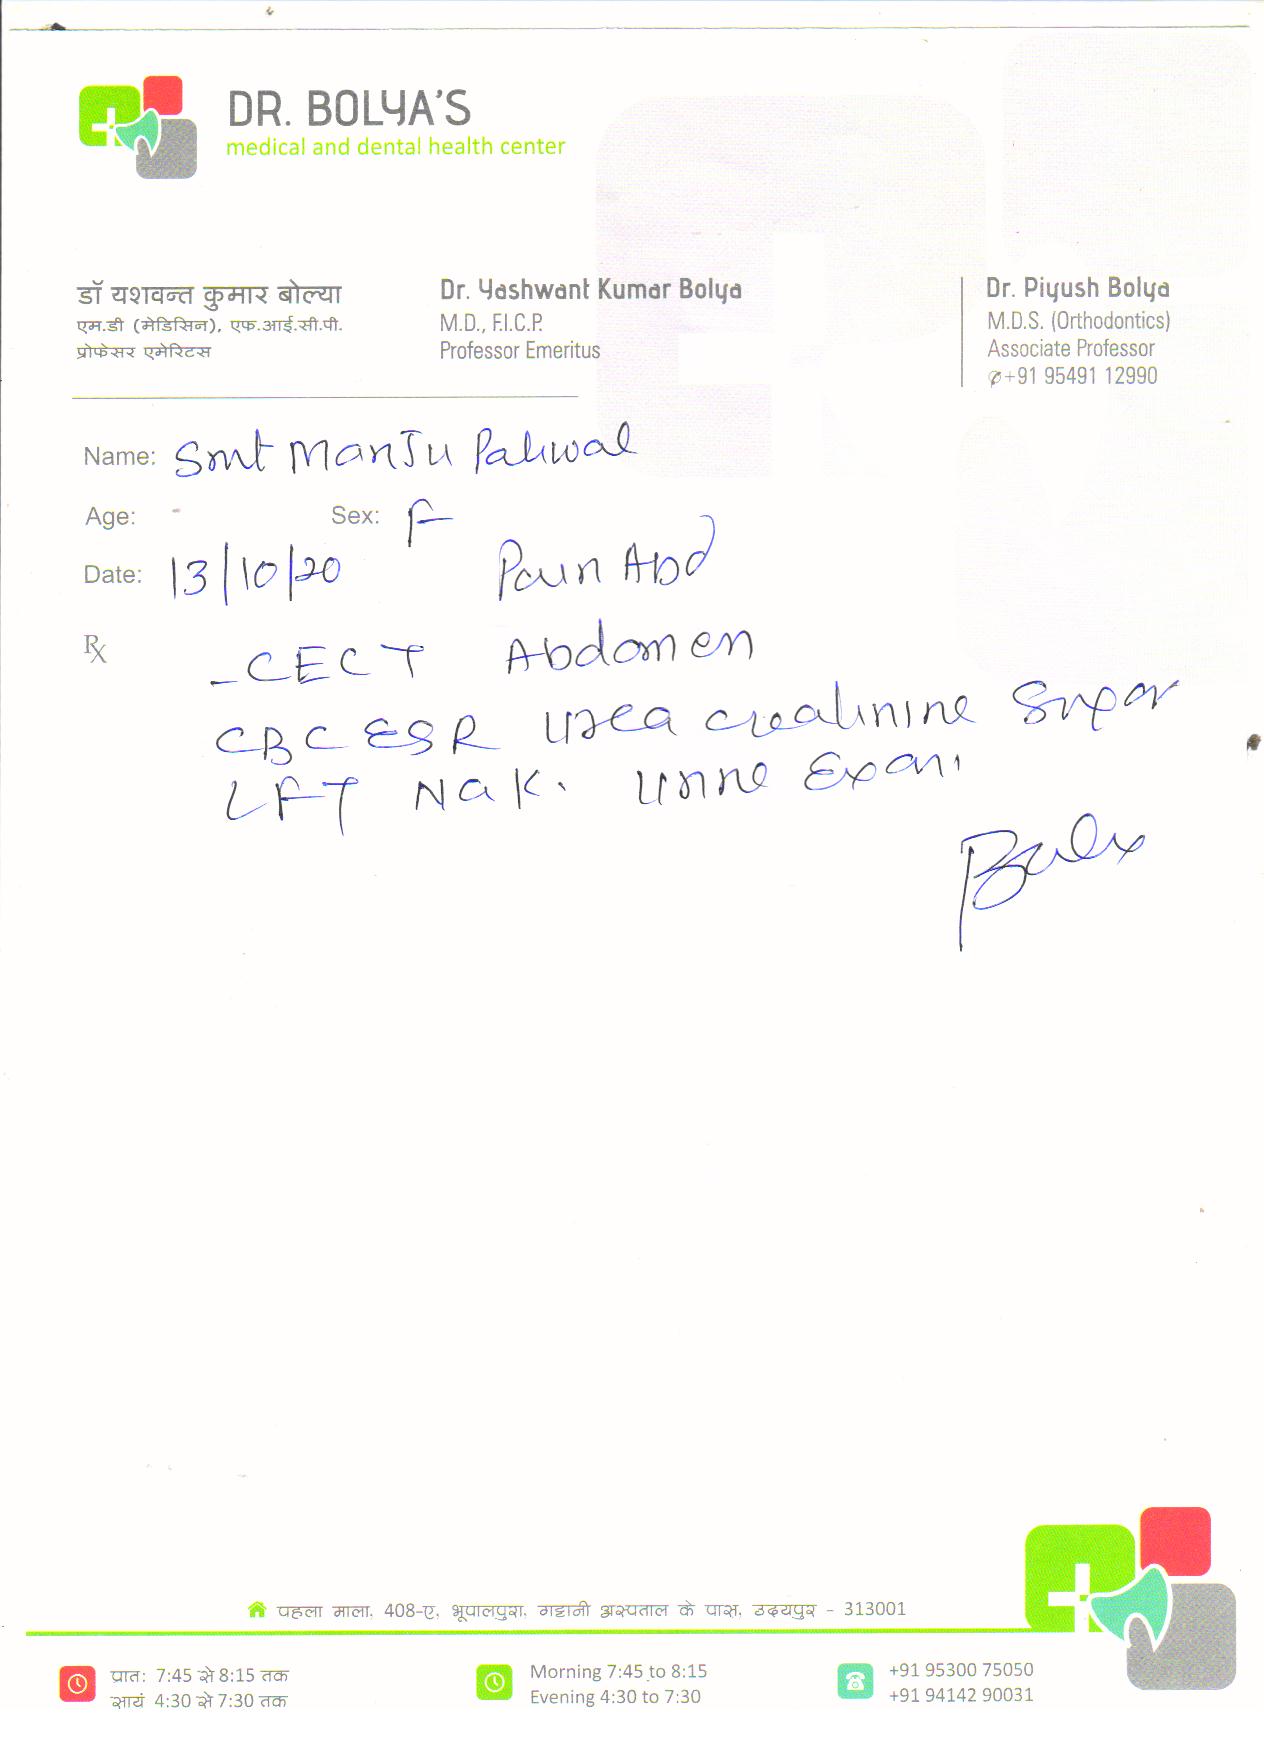 DR. BOLYA'S
medical and dental health center
डॉ यशवन्त कुमार बोल्या
एम.डी (मेडिसिन), एफ.आई.सी.पी.
प्रोफेसर एमेरिटस
Dr. Yashwant Kumar Bolya
M.D., F.I.C.P.
Professor Emeritus
Dr. Piyush Bolya
M.D.S. (Orthodontics)
Associate Professor
✆+91 95491 12990
Name: Smt Manju Paliwal
Age: - Sex: F
Date: 13/10/20
Pain Abd
Rx
- CECT Abdomen
CBC ESR Urea Creatinine Sugar
LFT Na K. Urine Exam
पहला माला, 408-ए, भूपालपुरा, गट्टानी अस्पताल के पास, उदयपुर - 313001
प्रात: 7:45 से 8:15 तक
सायं 4:30 से 7:30 तक
Morning 7:45 to 8:15
Evening 4:30 to 7:30
+91 95300 75050
+91 94142 90031